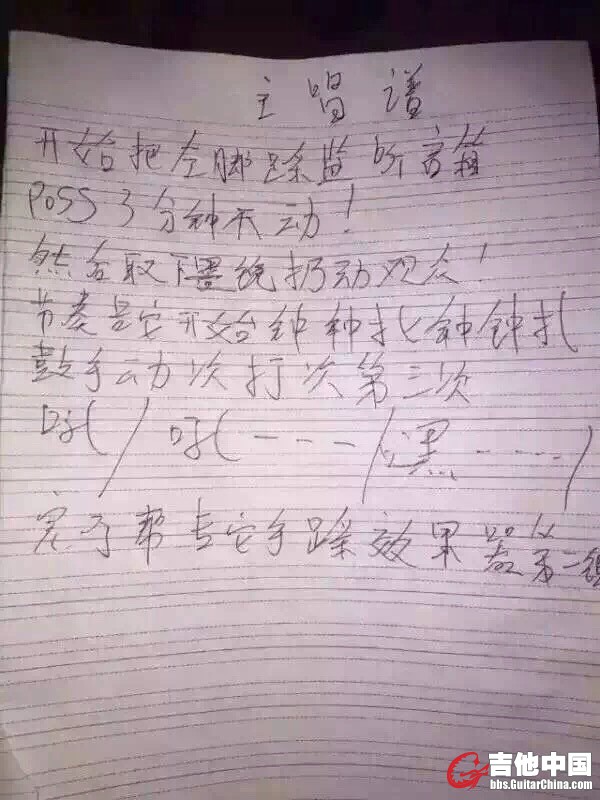 主唱谱
开始把左脚踩监听音箱
POSS 3分钟不动!
然后取下墨镜扔动观众!
节奏吉它开始钟钟扎钟钟扎
鼓手动次打次第三次
吼/吼----/嘿-----/
完了帮吉它手踩效果器
第二
吉他中国
bbs.GuitarChina.com